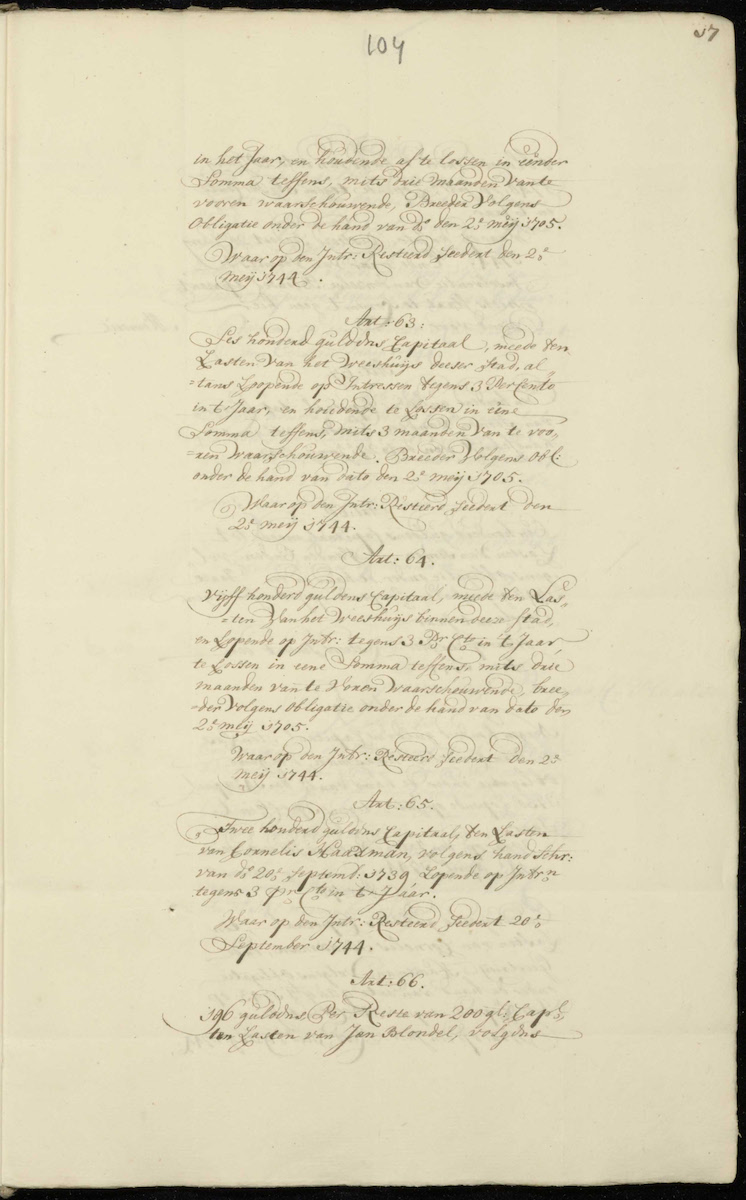 104
57
in het Jaar, en houdende af te lossen in eender
Somma teffens, mits drie maanden van te
vooren waarschouwende, Breeder Volgens
Obligatie onder de hand van do. den 2e. meij 1705.
Waar op den Intr: Resteerd seedert den 2e.
meij 1744.
Art: 63:
Ses honderd guldens Capitaal, meede ten
Lasten van het Weeshuijs deeser stad, al
=tans Loopende op Intressen tegens 3 Per Cento
in 't Jaar, en houdende te Lossen in eene
Somma teffens, mits 3 maanden van te voo,
=ren waarschouwende. Breeder Volgens Obl:
onder de hand van dato den 2e. meij 1705.
Waar op den Intr: Resteerd seedert den
2e. meij 1744.
Art: 64.
Vijff honderd guldens Capitaal, meede ten Las,
=ten van het Weeshuijs binnen deeze stad,
en Lopende op Intr: tegens 3 Pr. Cto in 't Jaar,
te Lossen in eene Somma teffens, mits drie
maanden van te Voren Waarschouwende, bree,
=der Volgens Obligatie onder de hand van dato den
2e. meij 1705.
Waar op den Intr: Resteerd seedert den 2e
meij 1744.
Art: 65.
Twee honderd guldens Capitaal, ten Lasten
van Cornelis Haasman, volgens handschr:
van do. 20e. Septemb: 1739 Lopende op Intrn
tegens 3 Pr. Cto in 't Jaar.
Waar op den Intr: Resteerd seedert 20e.
September 1744.
Art: 66.
196 guldens Per Reste van 200 gl: Capl:
ten Lasten van Jan Blondel, volgens